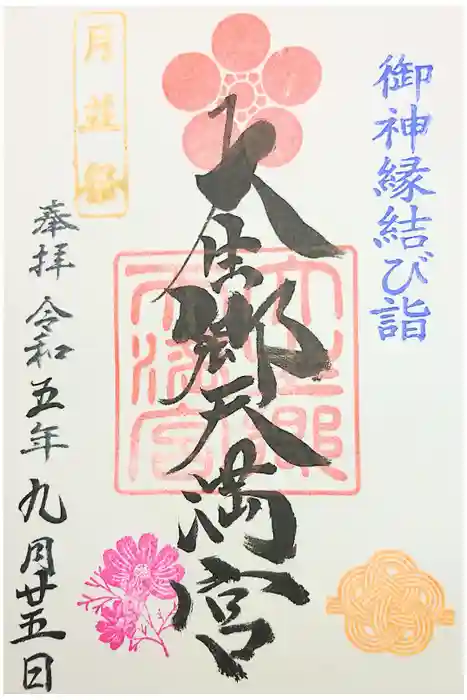 御神縁結び詣
大生郷天満宮
月並祭
奉拝 令和五年九月廿五日